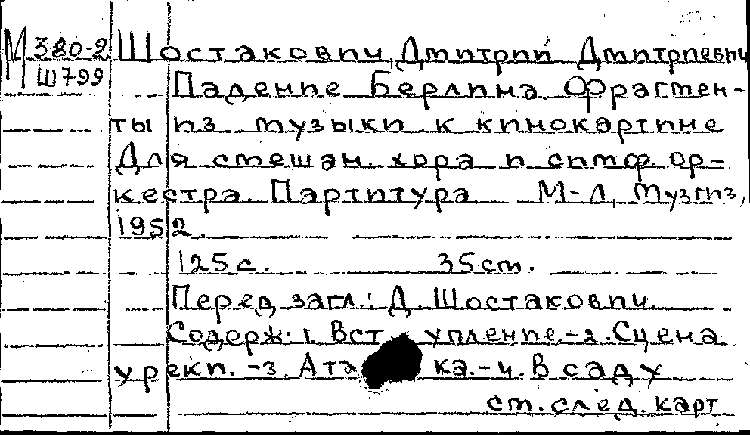 М 380-2 Шостакович, Дмитрий Дмитриевич
Ш799
Падение Берлина. Фрагмен-
ты из музыки к кинокартине
Для смешан. хора и симф. ор-
кестра. Партитура М-Л, Музгиз,
1952.
125 с. 35 см.
Перед загл.: Д. Шостакович.
Содерж: 1. Вступление.-2. Сцена
у реки.-3. Атака.-4. В саду
см. след. карт